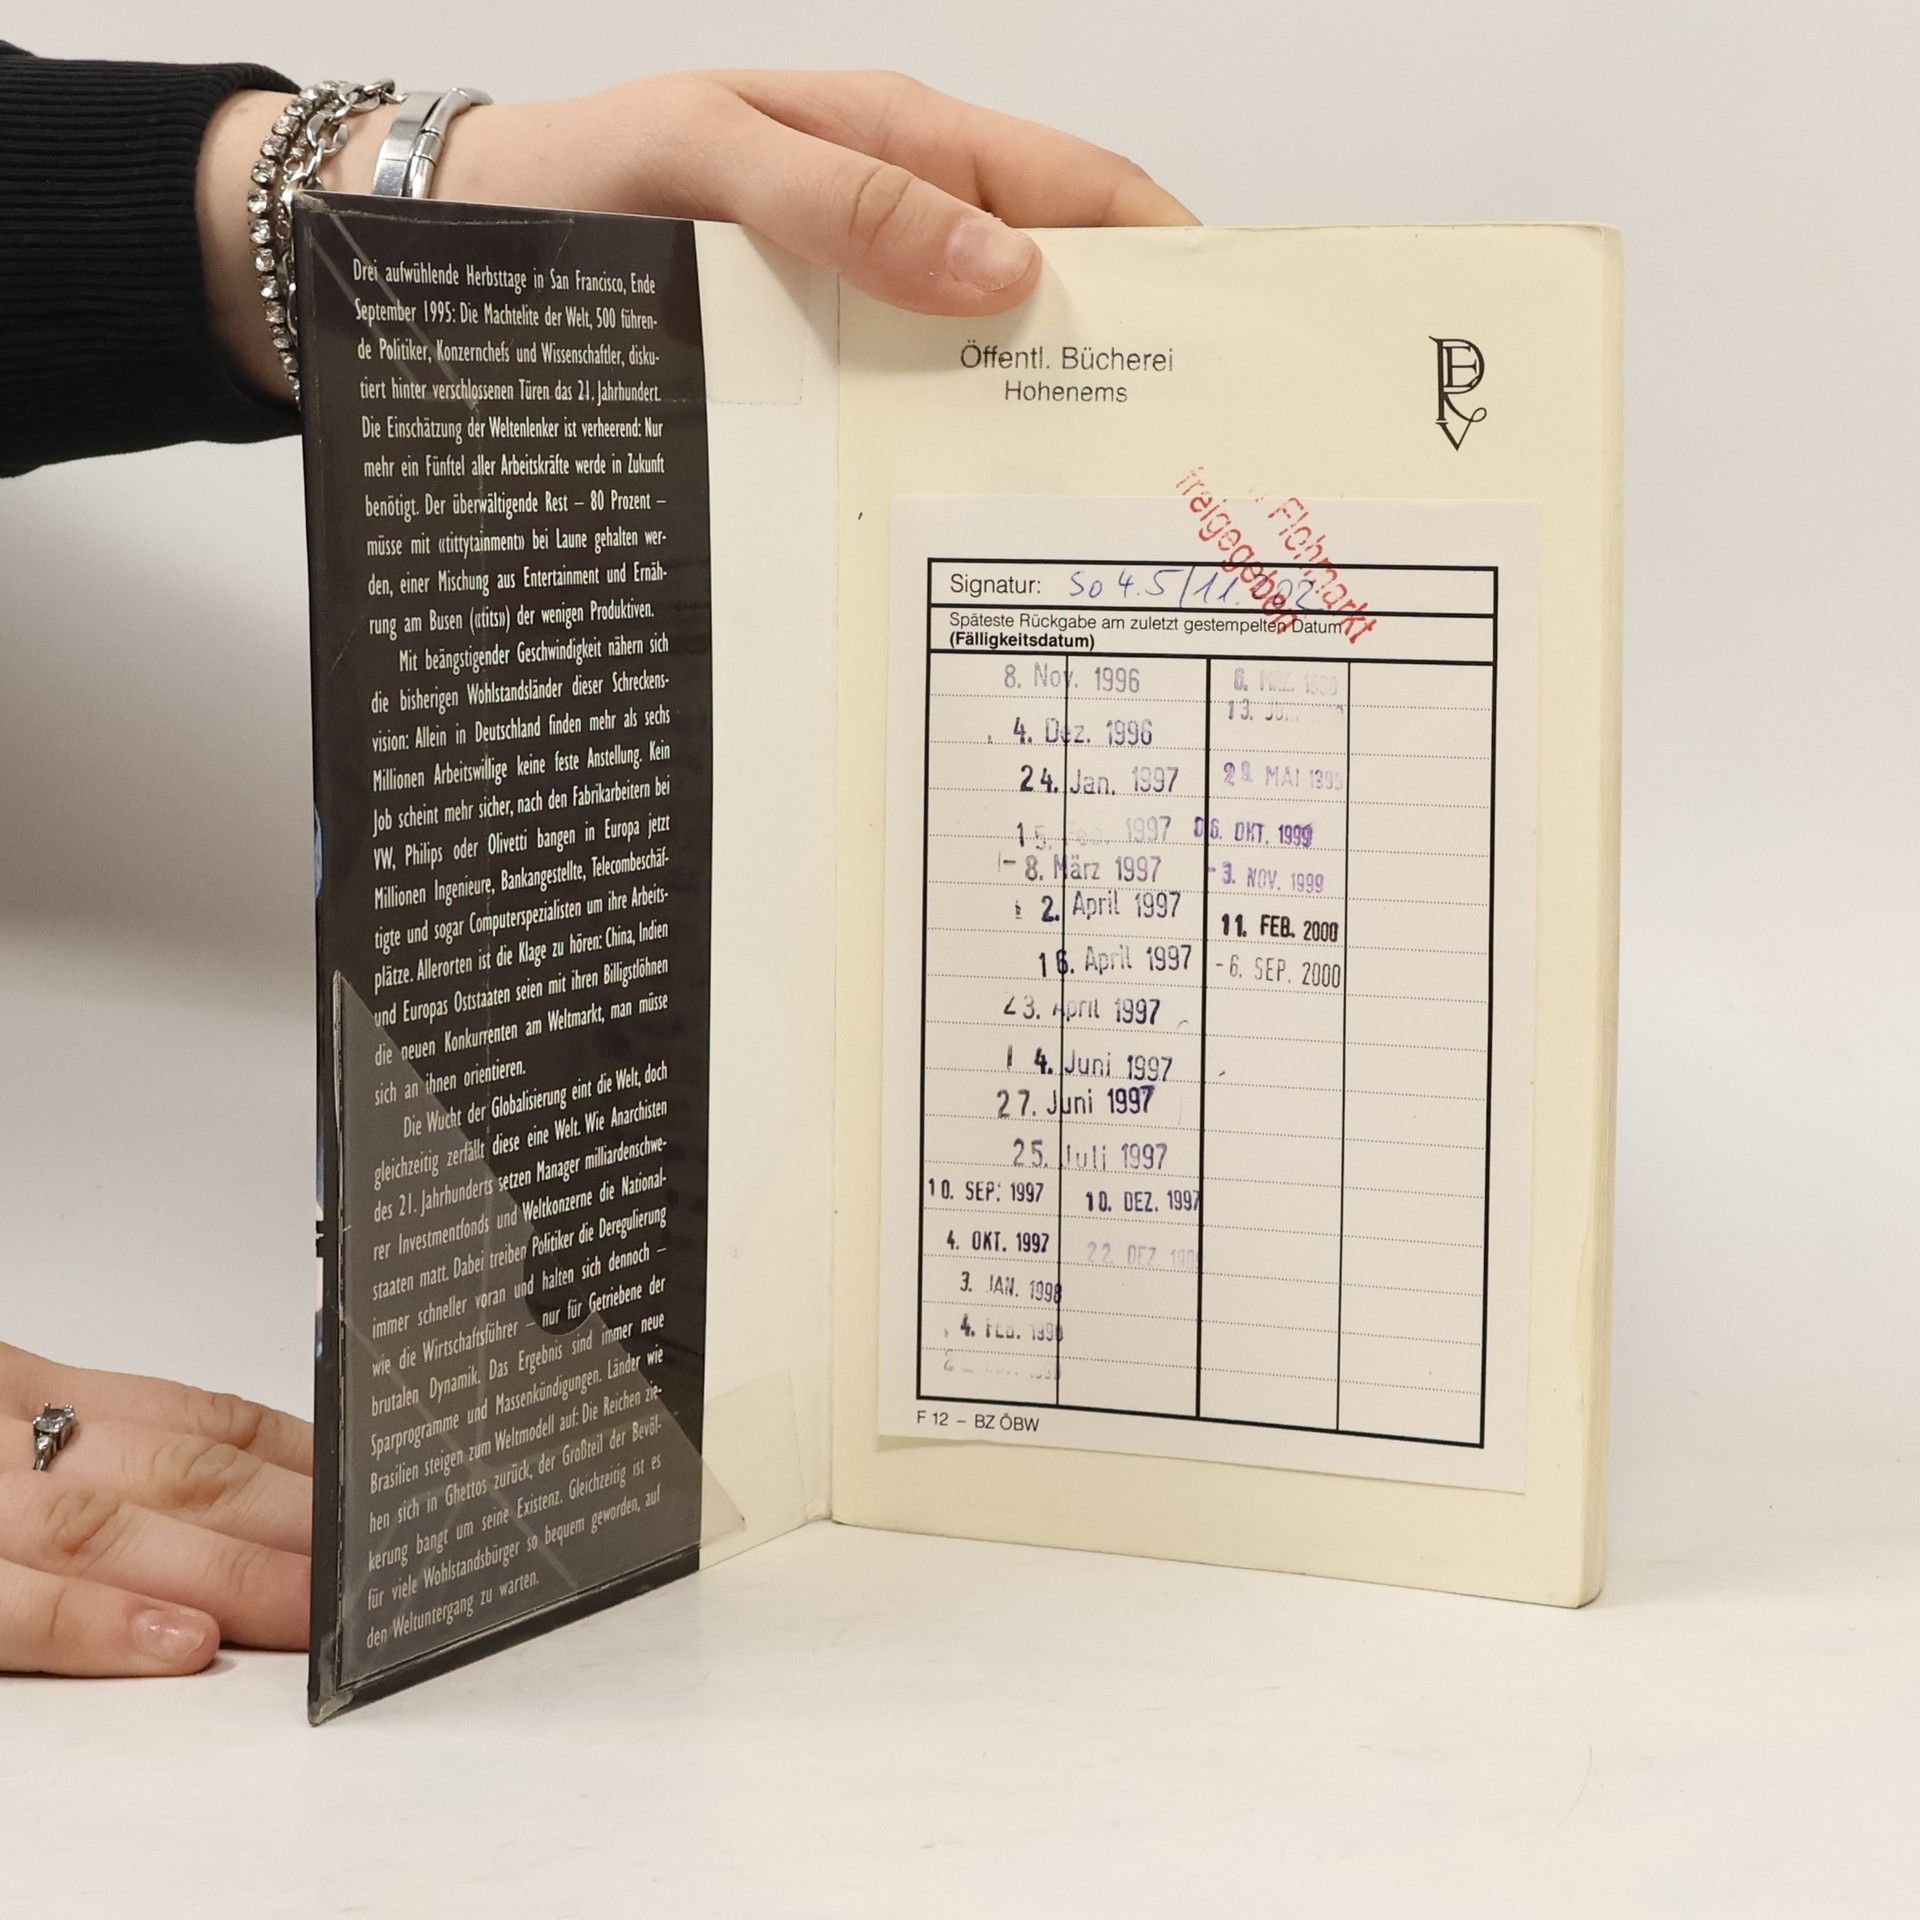 Drei aufwühlende Herbsttage in San Francisco, Ende
September 1995: Die Machtelite der Welt, 500 führen-
de Politiker, Konzernchefs und Wissenschaftler, disku-
tiert hinter verschlossenen Türen das 21. Jahrhundert.
Die Einschätzung der Weltenlenker ist verheerend: Nur
mehr ein Fünftel aller Arbeitskräfte werde in Zukunft
benötigt. Der überwältigende Rest – 80 Prozent –
müsse mit «tittytainment» bei Laune gehalten wer-
den, einer Mischung aus Entertainment und Ernäh-
rung am Busen («tits») der wenigen Produktiven.
Mit beängstigender Geschwindigkeit nähern sich
die bisherigen Wohlstandsländer dieser Schreckens-
vision: Allein in Deutschland finden mehr als sechs
Millionen Arbeitswillige keine feste Anstellung. Kein
Job scheint mehr sicher, nach den Fabrikarbeitern bei
VW, Philips oder Olivetti bangen in Europa jetzt
Millionen Ingenieure, Bankangestellte, Telecombeschäf-
tigte und sogar Computerspezialisten um ihre Arbeits-
plätze. Allerorten ist die Klage zu hören: China, Indien
und Europas Oststaaten seien mit ihren Billigstlöhnen
die neuen Konkurrenten am Weltmarkt, man müsse
sich an ihnen orientieren.
Die Wucht der Globalisierung eint die Welt, doch
gleichzeitig zerfällt diese eine Welt. Wie Anarchisten
des 21. Jahrhunderts setzen Manager milliardenschwe-
rer Investmentfonds und Weltkonzerne die National-
staaten matt. Dabei treiben Politiker die Deregulierung
immer schneller voran und halten sich dennoch –
wie die Wirtschaftsführer – nur für Getriebene der
brutalen Dynamik. Das Ergebnis sind immer neue
Sparprogramme und Massenkündigungen. Länder wie
Brasilien steigen zum Weltmodell auf: Die Reichen zie-
hen sich in Ghettos zurück, der Großteil der Bevöl-
kerung bangt um seine Existenz. Gleichzeitig ist es
für viele Wohlstandsbürger so bequem geworden, auf
den Weltuntergang zu warten.
Öffentl. Bücherei
Hohenems
Flohmarkt
freigegeben
Signatur: So 4.5/11.
Späteste Rückgabe am zuletzt gestempelten Datum
(Fälligkeitsdatum)
8. Nov. 1996
4. Dez. 1996
24. Jan. 1997
15. 1997
8. März 1997
2. April 1997
16. April 1997
23. April 1997
14. Juni 1997
27. Juni 1997
25. Juli 1997
10. SEP. 1997
4. OKT. 1997
3. JAN. 1998
4. FEB.
10. DEZ. 1997
22. DEZ
6. MRZ.
13.
MAI 1999
06. OKT. 1999
-3. NOV. 1999
11. FEB. 2000
-6. SEP. 2000
F 12 – BZ ÖBW